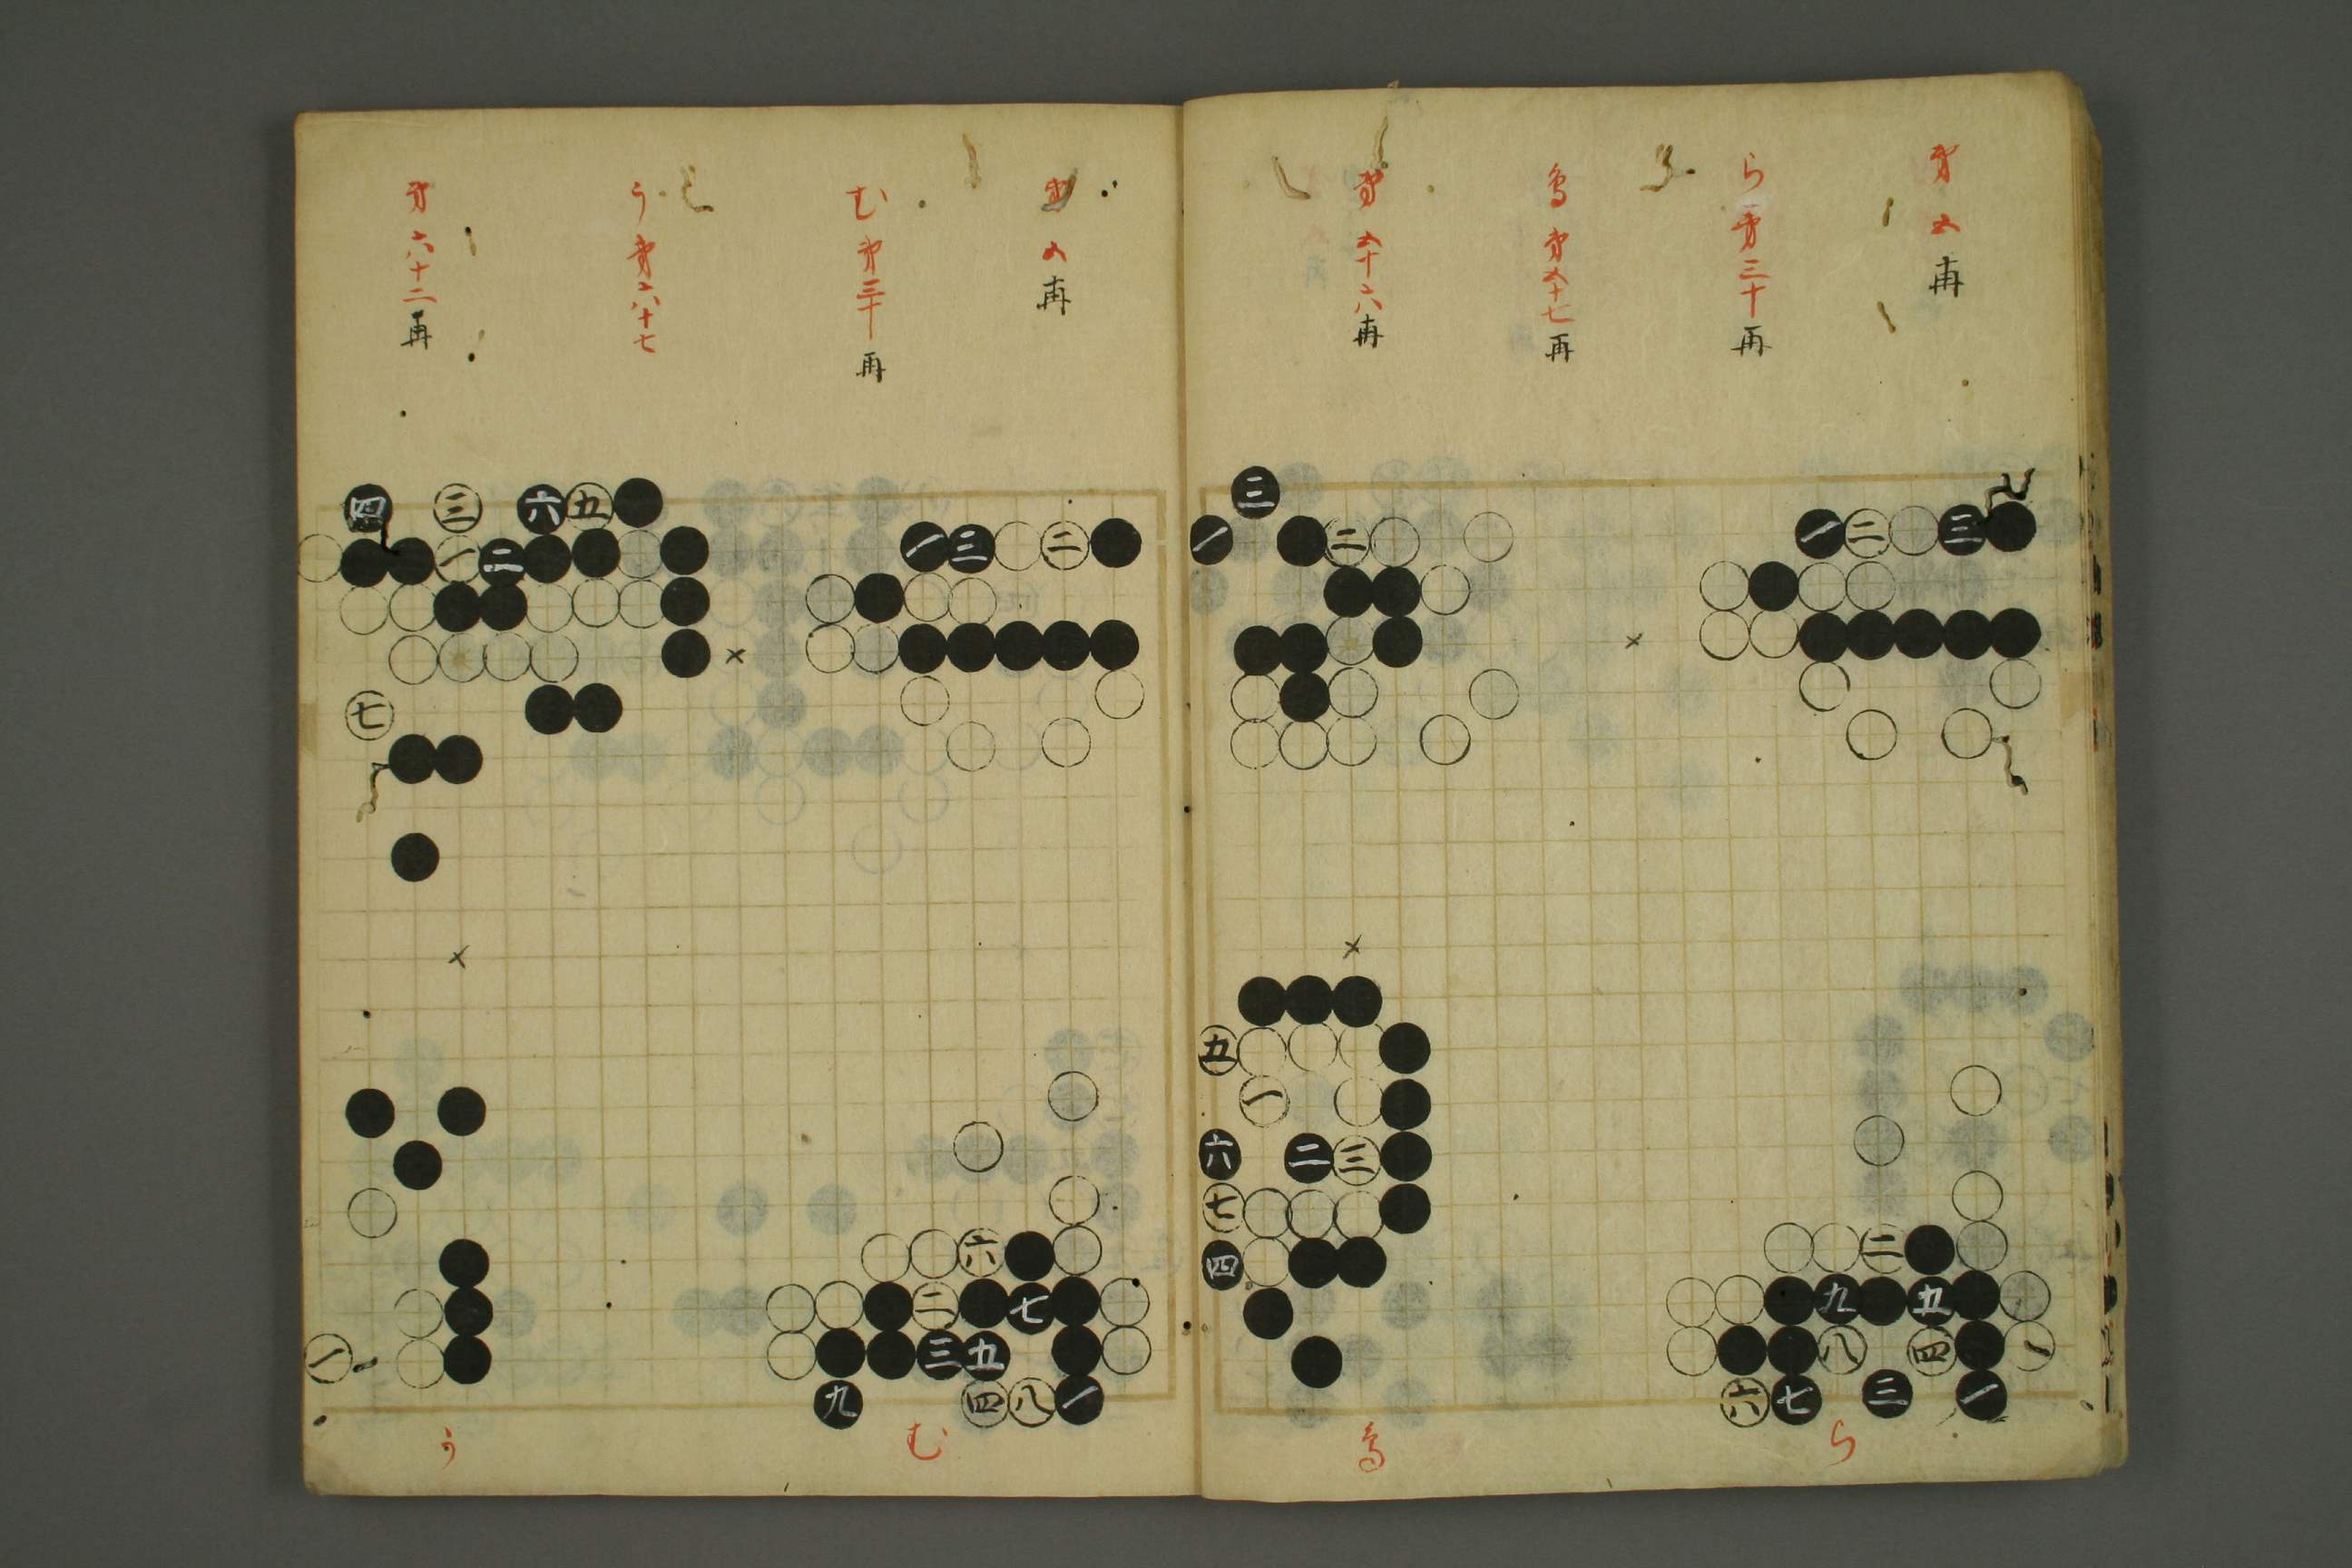 第五再
ら第三十再
為第五十七再
第五十六再
第五再
む第三十再
う第六十七
第六十二再
一二三
三
一二
五
一
六二三
七
四
二
九五
八四一
六七三一
ら
為
一三二
四三六五
一二
七
六
二七
三五
九四八一
一
む
う